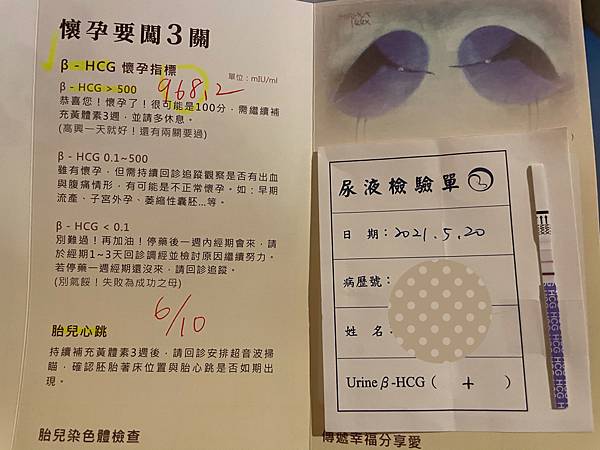 懷孕要闖3關
β - HCG 懷孕指標
單位：mIU/ml
β - HCG > 500
968.2
恭喜您！懷孕了！很可能是100分，需繼續補
充黃體素3週，並請多休息。
(高興一天就好！還有兩關要過)
β - HCG 0.1~500
雖有懷孕，但需持續回診追蹤觀察是否有出血
與腹痛情形，有可能是不正常懷孕。如：早期
流產、子宮外孕、萎縮性囊胚...等。
β - HCG < 0.1
別難過！再加油！停藥後一週內經期會來，請
於經期1~3天回診調經並檢討原因繼續努力。
若停藥一週經期還沒來，請回診追蹤。
(別氣餒！失敗為成功之母)
6/10
胎兒心跳
持續補充黃體素3週後，請回診安排超音波掃
瞄，確認胚胎著床位置與胎心跳是否如期出
現。
胎兒染色體檢查
尿液檢驗單
日 期：2021.5.20
病歷號：
姓 名：
Urine β-HCG ( + )
HCG HCG HCG HCG HCG
傳遞幸福分享愛